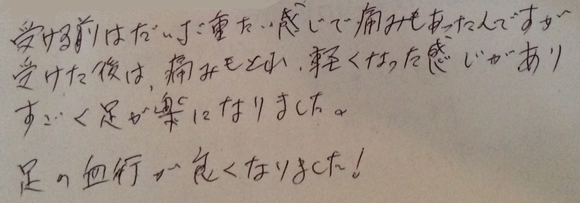 受ける前はだいぶ重たい感じで痛みもあったんですが
受けた後は、痛みもとれ、軽くなった感じがあり
すごく足が楽になりました。
足の血行が良くなりました！